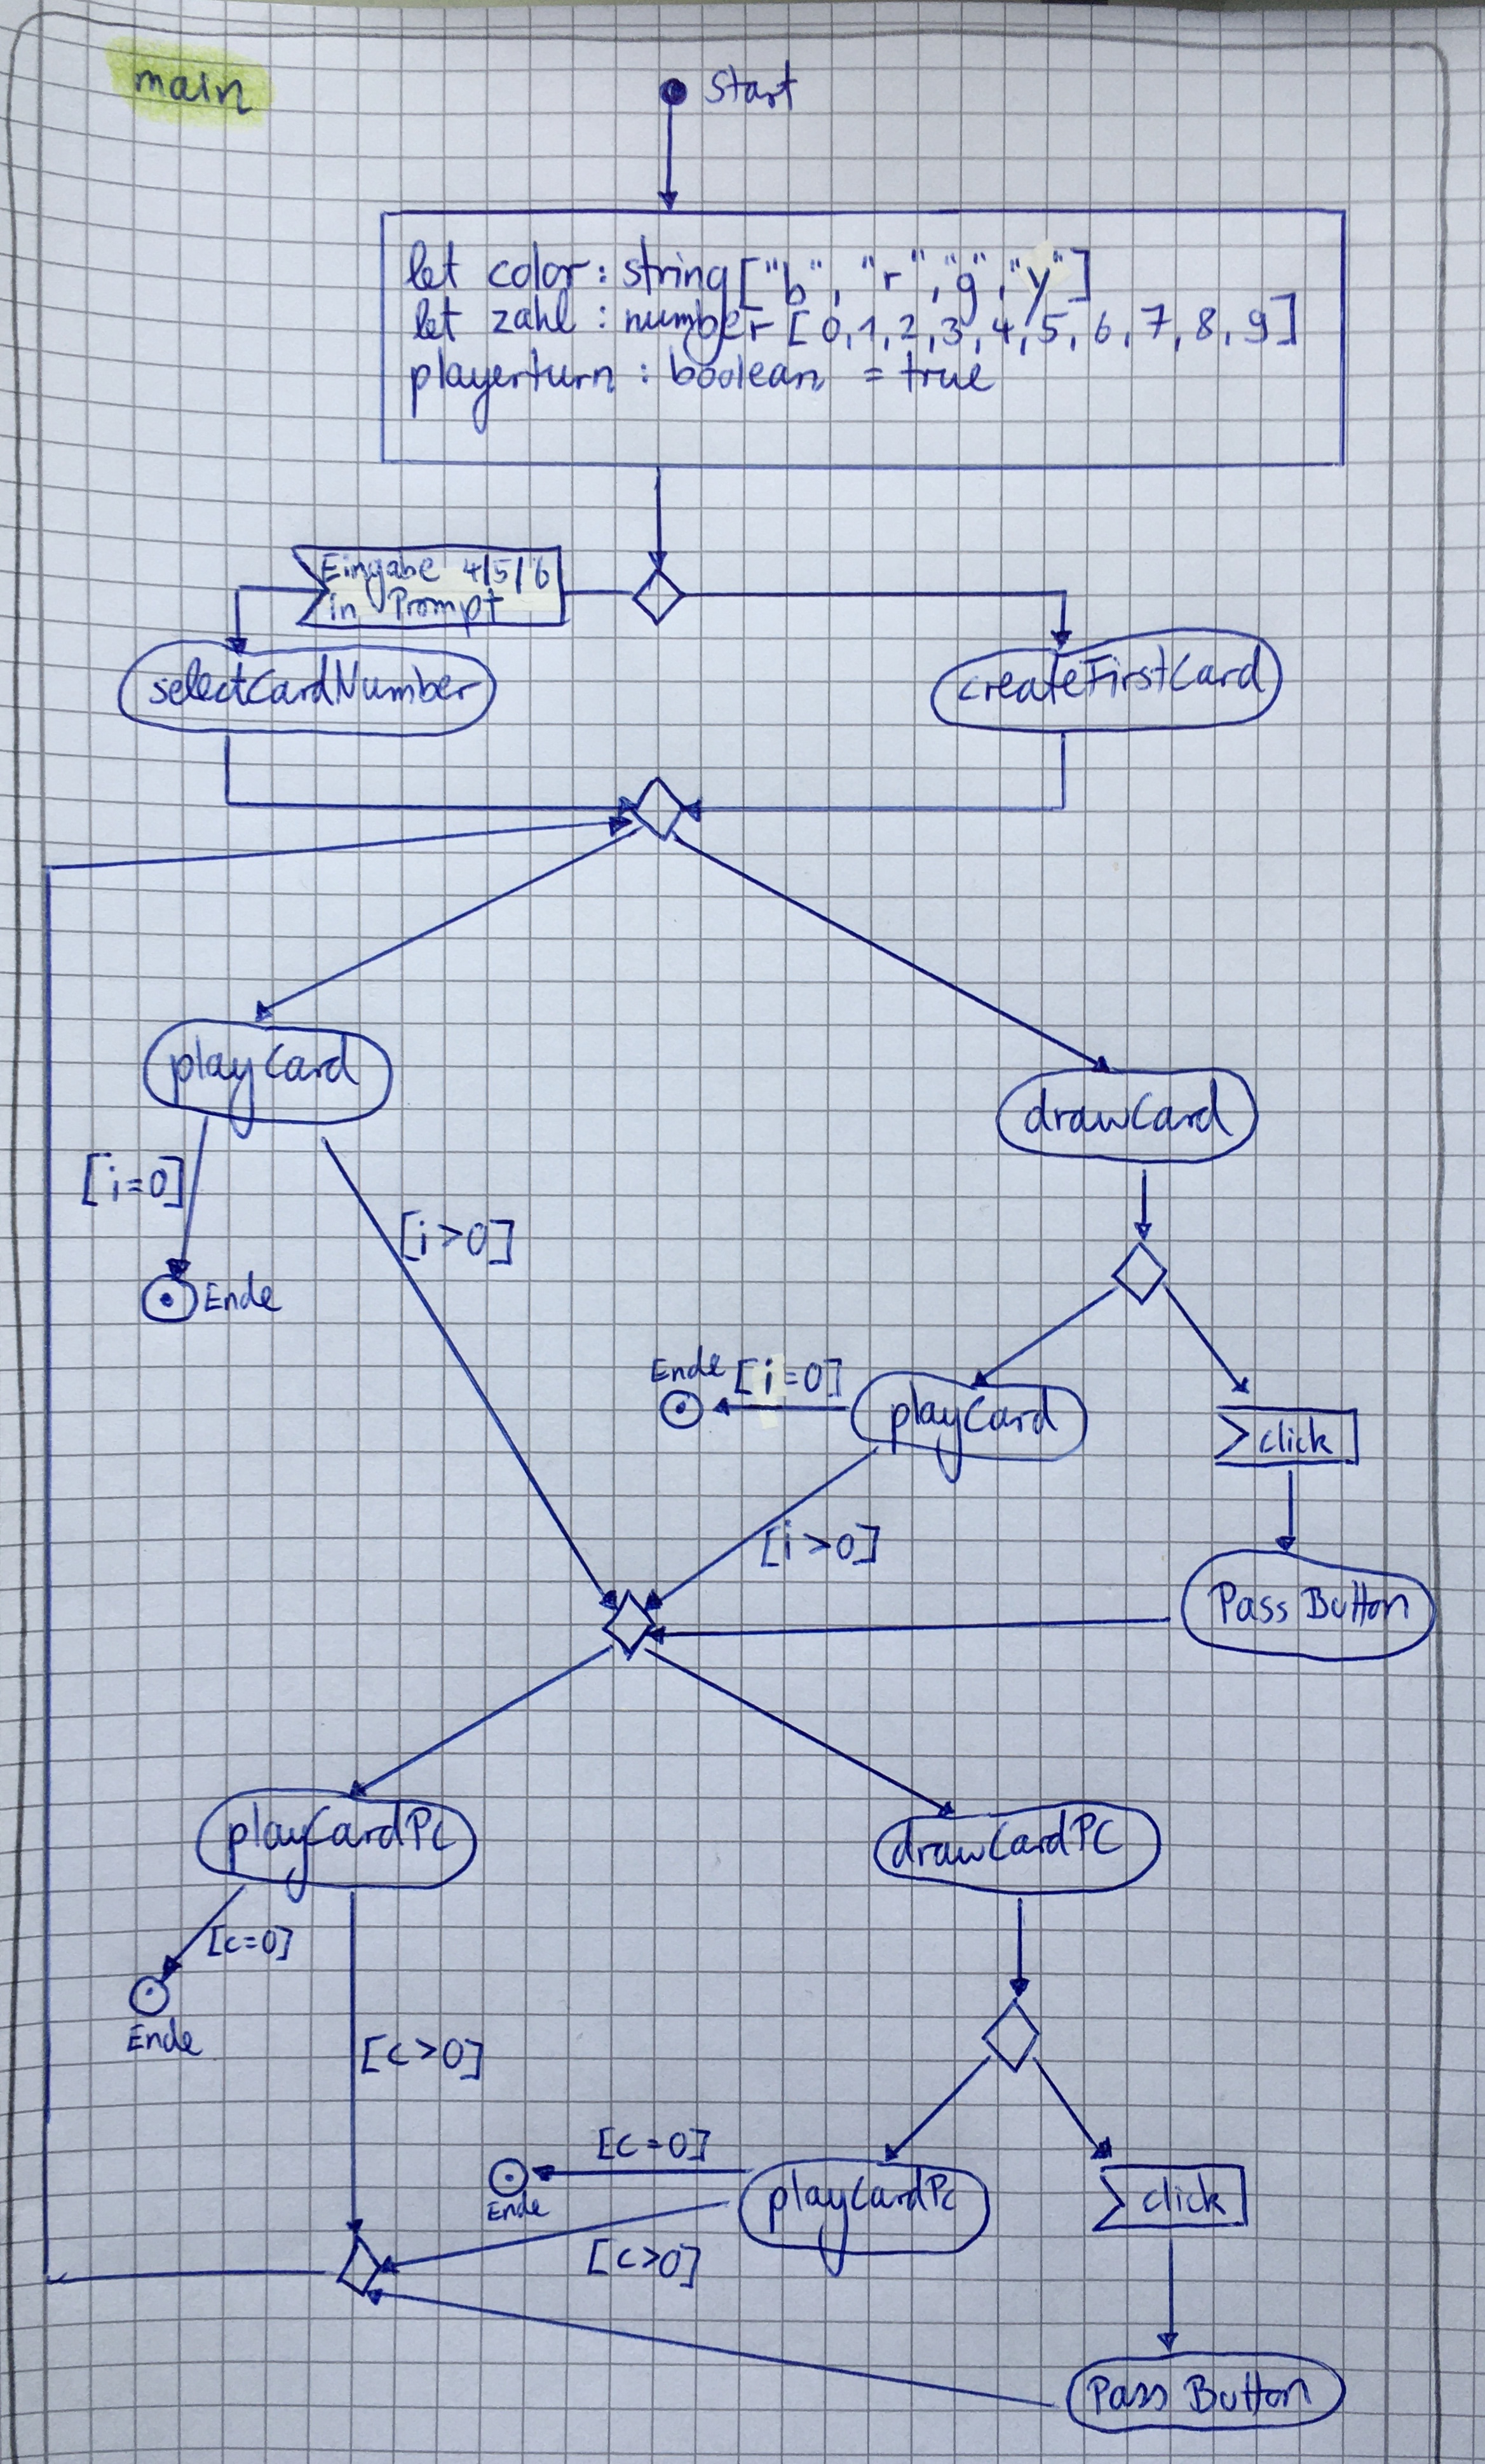 main
Start
let color : string ["b", "r", "g", "y"]
let zahl : number [0,1,2,3,4,5,6,7,8,9]
playerturn : boolean = true
Eingabe 4/5/6
in Prompt
selectCardNumber
createFirstCard
playCard
drawCard
[i=0]
[i>0]
Ende
Ende [i=0]
playCard
click
[i>0]
Pass Button
playCardPC
drawCardPC
[c=0]
Ende
[c>0]
[c=0]
Ende
playCardPc
click
[c>0]
Pass Button